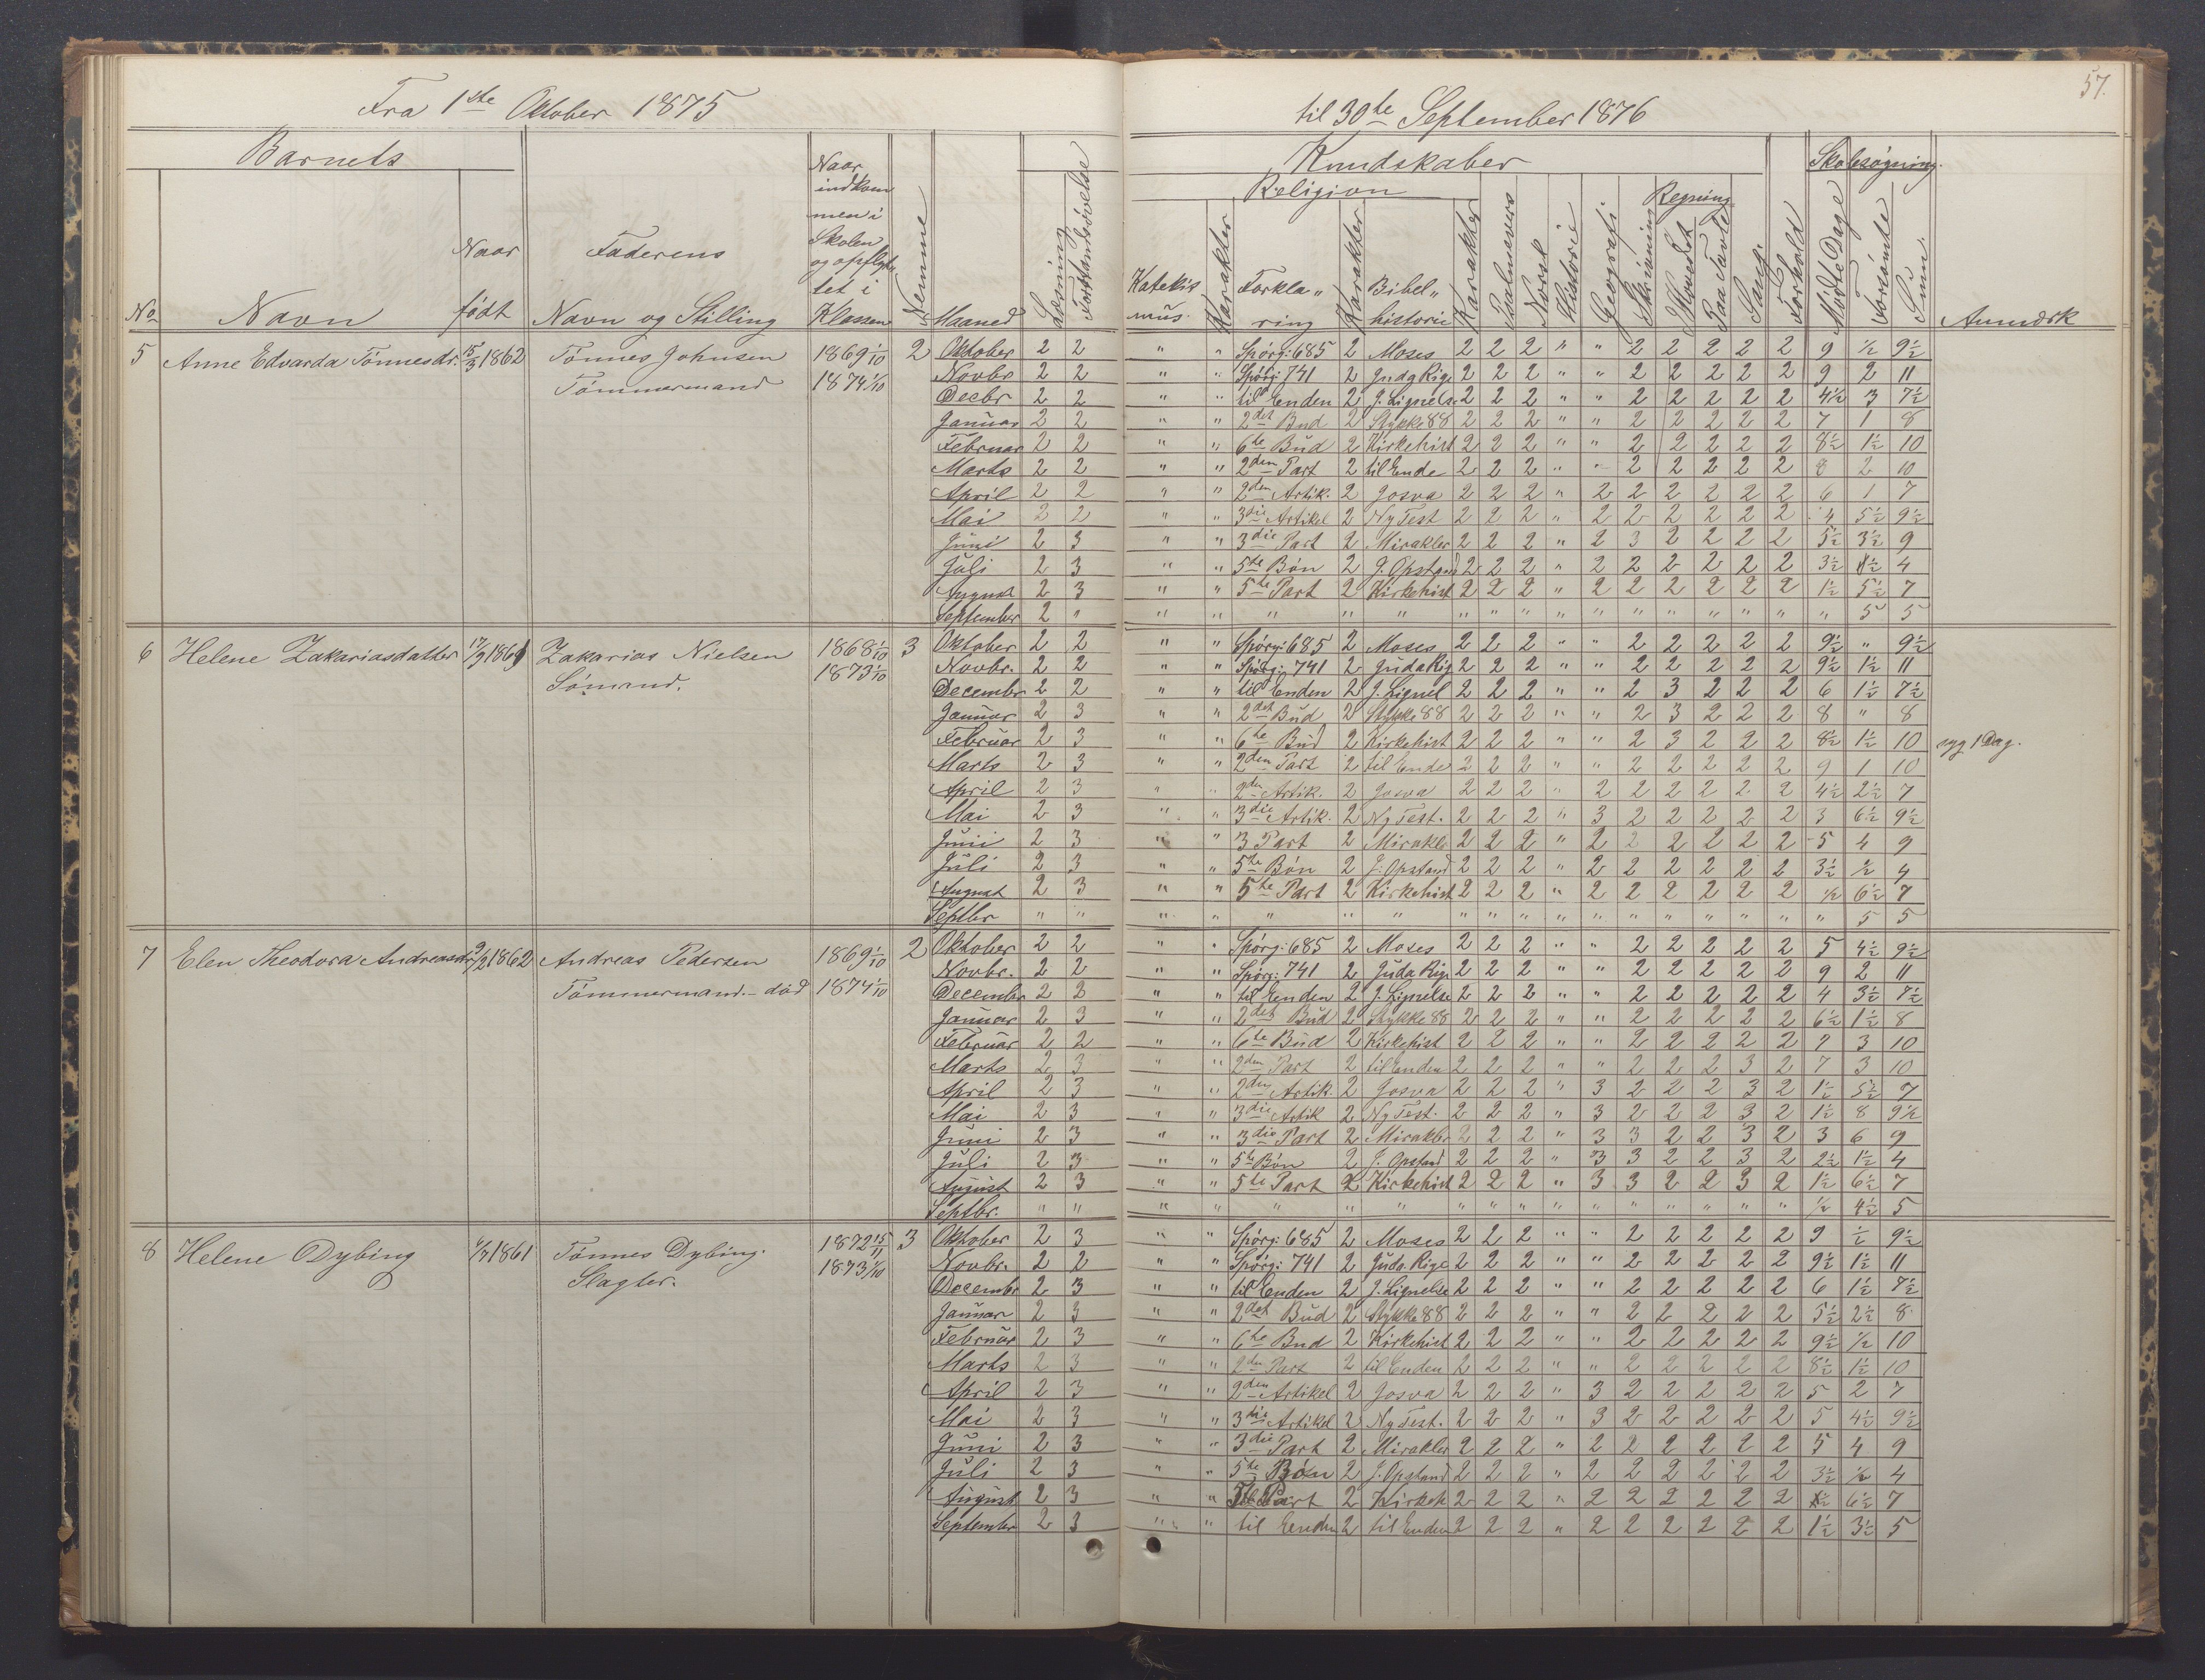 57.
Fra 1ste Oktober 1875 til 30te September 1876
Barnets Kundskaber Skolesøgning.
Religion Regning
No Navn Naar født Faderens Navn og Stilling Naar indkommen i Skolen og opflyttet i Klassen Nemme Maaned Læsning Forstandsøvelse Katekismus Karakter Forkla„ring Karakter Bibel„historie Karakter Psalmevers Norsk Historie Geografi Skrivning Hovedet Paa Tavle Sang Forhold Mødte Dage Forsømte Sum. Anmærk
5 Anne Edvarda Tønnesdr. 15/3 1862 Tønnes Johnsen 1869 1/10 2 Oktober 2 2 " " Spørg: 685 2 Moses 2 2 2 " " 2 2 2 2 2 9 1/2 9 1/2
Tømmermand 1874 1/10 Novbr 2 2 " " Spørg: 741 2 Juda Rige 2 2 2 " " 2 2 2 2 2 9 2 11
Decbr 2 2 " " til Enden 2 J. Lignelse 2 2 2 " " 2 2 2 2 2 4 1/2 3 7 1/2
Januar 2 2 " " 2det Bud 2 Stykke 88 2 2 2 " " 2 2 2 2 2 7 1 8
Februar 2 2 " " 6te Bud 2 Kirkehist 2 2 2 " " 2 2 2 2 2 8 1/2 1 1/2 10
Marts 2 2 " " 2den Part 2 til Ende 2 2 2 " " 2 2 2 2 2 8 2 10
April 2 2 " " 2den Artik. 2 Josva 2 2 2 " 2 2 2 2 2 2 6 1 7
Mai 2 2 " " 3die Artikel 2 Ny Test 2 2 2 " 2 2 2 2 2 2 4 5 1/2 9 1/2
Juni 2 3 " " 3die Part 2 Mirakler 2 2 2 " 2 3 2 2 2 2 5 1/2 3 1/2 9
Juli 2 3 " " 5te Bøn 2 J. Opstand 2 2 2 " 2 2 2 2 2 2 3 1/2 1/2 4
August 2 3 " " 5te Part 2 Kirkehist 2 2 2 " 2 2 2 2 2 2 1 1/2 5 1/2 7
September 2 " " " " " " " " " " " " " " " " " 5 5
6 Helene Zakariasdatter 17/9 1861 Zakarias Nielsen 1868 1/10 3 Oktober 2 2 " " Spørg: 685 2 Moses 2 2 2 " " 2 2 2 2 2 9 1/2 " 9 1/2
Sømand. 1873 1/10 Novbr. 2 2 " " Spørg: 741 2 Juda Rig 2 2 2 " " 2 2 2 2 2 9 1/2 1 1/2 11
Decembr 2 2 " " til Enden 2 J. Lignel 2 2 2 " " 2 3 2 2 2 6 1 1/2 7 1/2
Januar 2 3 " " 2det Bud 2 Stykke 88 2 2 2 " " 2 3 2 2 2 8 " 8
Februar 2 3 " " 6te Bud 2 Kirkehist 2 2 2 " " 2 3 2 2 2 8 1/2 1 1/2 10 syg 1 Dag.
Marts 2 3 " " 2den Part 2 til Ende 2 2 2 " " 2 2 2 2 2 9 1 10
April 2 3 " " 2den Artik. 2 Josva 2 2 2 " 2 2 2 2 2 2 4 1/2 2 1/2 7
Mai 2 3 " " 3die Artik. 2 Ny Test. 2 2 2 " 3 2 2 2 2 2 3 6 1/2 9 1/2
Juni 2 3 " " 3 Part 2 Mirakle 2 2 2 " 2 2 2 2 2 2 5 4 9
Juli 2 3 " " 5te Bøn 2 J. Opstand 2 2 2 " 2 2 2 2 2 2 3 1/2 1/2 4
August 2 3 " " 5te Part 2 Kirkehist 2 2 2 " 2 2 2 2 2 2 1/2 6 1/2 7
Septbr " " " " " " " " " " " " " " " " " " 5 5
7 Elen Theodora Andreasdr 9/2 1862 Andreas Pedersen 1869 1/10 2 Oktober 2 2 " " Spørg: 685 2 Moses 2 2 2 " " 2 2 2 2 2 5 4 1/2 9 1/2
Tømmermand. – død 1874 1/10 Novbr. 2 2 " " Spørg: 741 2 Juda Rige 2 2 2 " " 2 2 2 2 2 9 2 11
December 2 2 " " til Enden 2 J. Lignelse 2 2 2 " " 2 2 2 2 2 4 3 1/2 7 1/2
Januar 2 3 " " 2det Bud 2 Stykke 88 2 2 2 " " 2 2 2 2 2 6 1/2 1 1/2 8
Februar 2 2 " " 6te Bud 2 Kirkehist 2 2 2 " " 2 2 2 2 2 7 3 10
Marts 2 3 " " 2den Part 2 til Enden 2 2 2 " " 2 2 2 3 2 7 3 10
April 2 3 " " 2den Artik. 2 Josva 2 2 2 " 3 2 2 2 3 2 1 1/2 5 1/2 7
Mai 2 3 " " 3die Artik 2 Ny Test. 2 2 2 " 3 2 2 2 3 2 1 1/2 8 9 1/2
Juni 2 3 " " 3die Part 2 Mirakler 2 2 2 " 3 3 2 2 3 2 3 6 9
Juli 2 3 " " 5te Bøn 2 J. Opstand 2 2 2 " 3 3 2 2 3 2 2 1/2 1 1/2 4
August 2 3 " " 5te Part 2 Kirkehist 2 2 2 " 3 3 2 2 3 2 1 1/2 6 1/2 7
Septbr. " " " " " " " " " " " " " " " " " 1/2 4 1/2 5
8 Helene Dybing 4/7 1861 Tønnes Dybing. 1872 15/11 3 Oktober 2 3 " " Spørg: 685 2 Moses 2 2 2 " " 2 2 2 2 2 9 1/2 9 1/2
Slagter. 1873 1/10 Novbr. 2 2 " " Spørg: 741 2 Juda. Rige 2 2 2 " " 2 2 2 2 2 9 1/2 1 1/2 11
Decembr 2 3 " " til Enden 2 J. Lignelse 2 2 2 " " 2 2 2 2 2 6 1 1/2 7 1/2
Januar 2 3 " " 2det Bud 2 Stykke 88 2 2 2 " " 2 2 2 2 2 5 1/2 2 1/2 8
Februar 2 3 " " 6te Bud 2 Kirkehist 2 2 2 " " 2 2 2 2 2 9 1/2 1/2 10
Marts 2 3 " " 2den Part 2 til Enden 2 2 2 " " 2 2 2 2 2 8 1/2 1 1/2 10
April 2 3 " " 2den Artikel 2 Josva 2 2 2 " 3 2 2 2 2 2 5 2 7
Mai 2 3 " " 3die Artikel 2 Ny Test. 2 2 2 " 3 2 2 2 2 2 5 4 1/2 9 1/2
Juni 2 3 " " 3die Part 2 Mirakler 2 2 2 " 2 2 2 2 2 2 5 4 9
Juli 2 3 " " 5te Bøn 2 J. Opstand 2 2 2 " 2 2 2 2 2 2 3 1/2 1/2 4
August 2 3 " " Part 2 Kirkeh 2 2 2 " 2 2 2 2 2 2 1/2 6 1/2 7
September 2 3 " " til Enden 2 til Enden 2 2 2 " 2 2 2 2 2 2 1 1/2 3 1/2 5